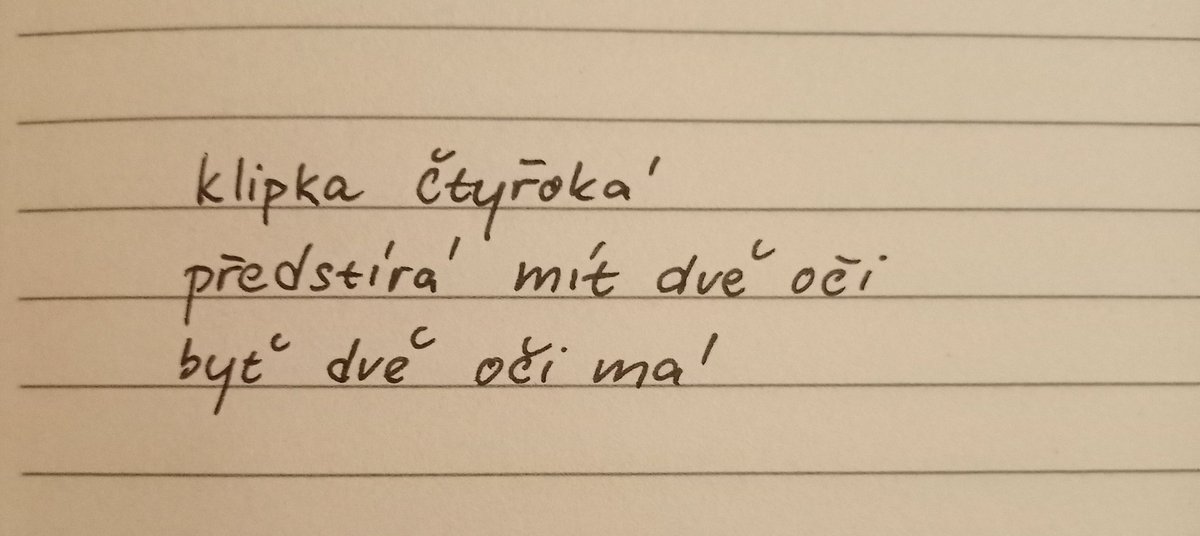 klipka čtyřoká
předstírá mít dvě oči
byť dvě oči má